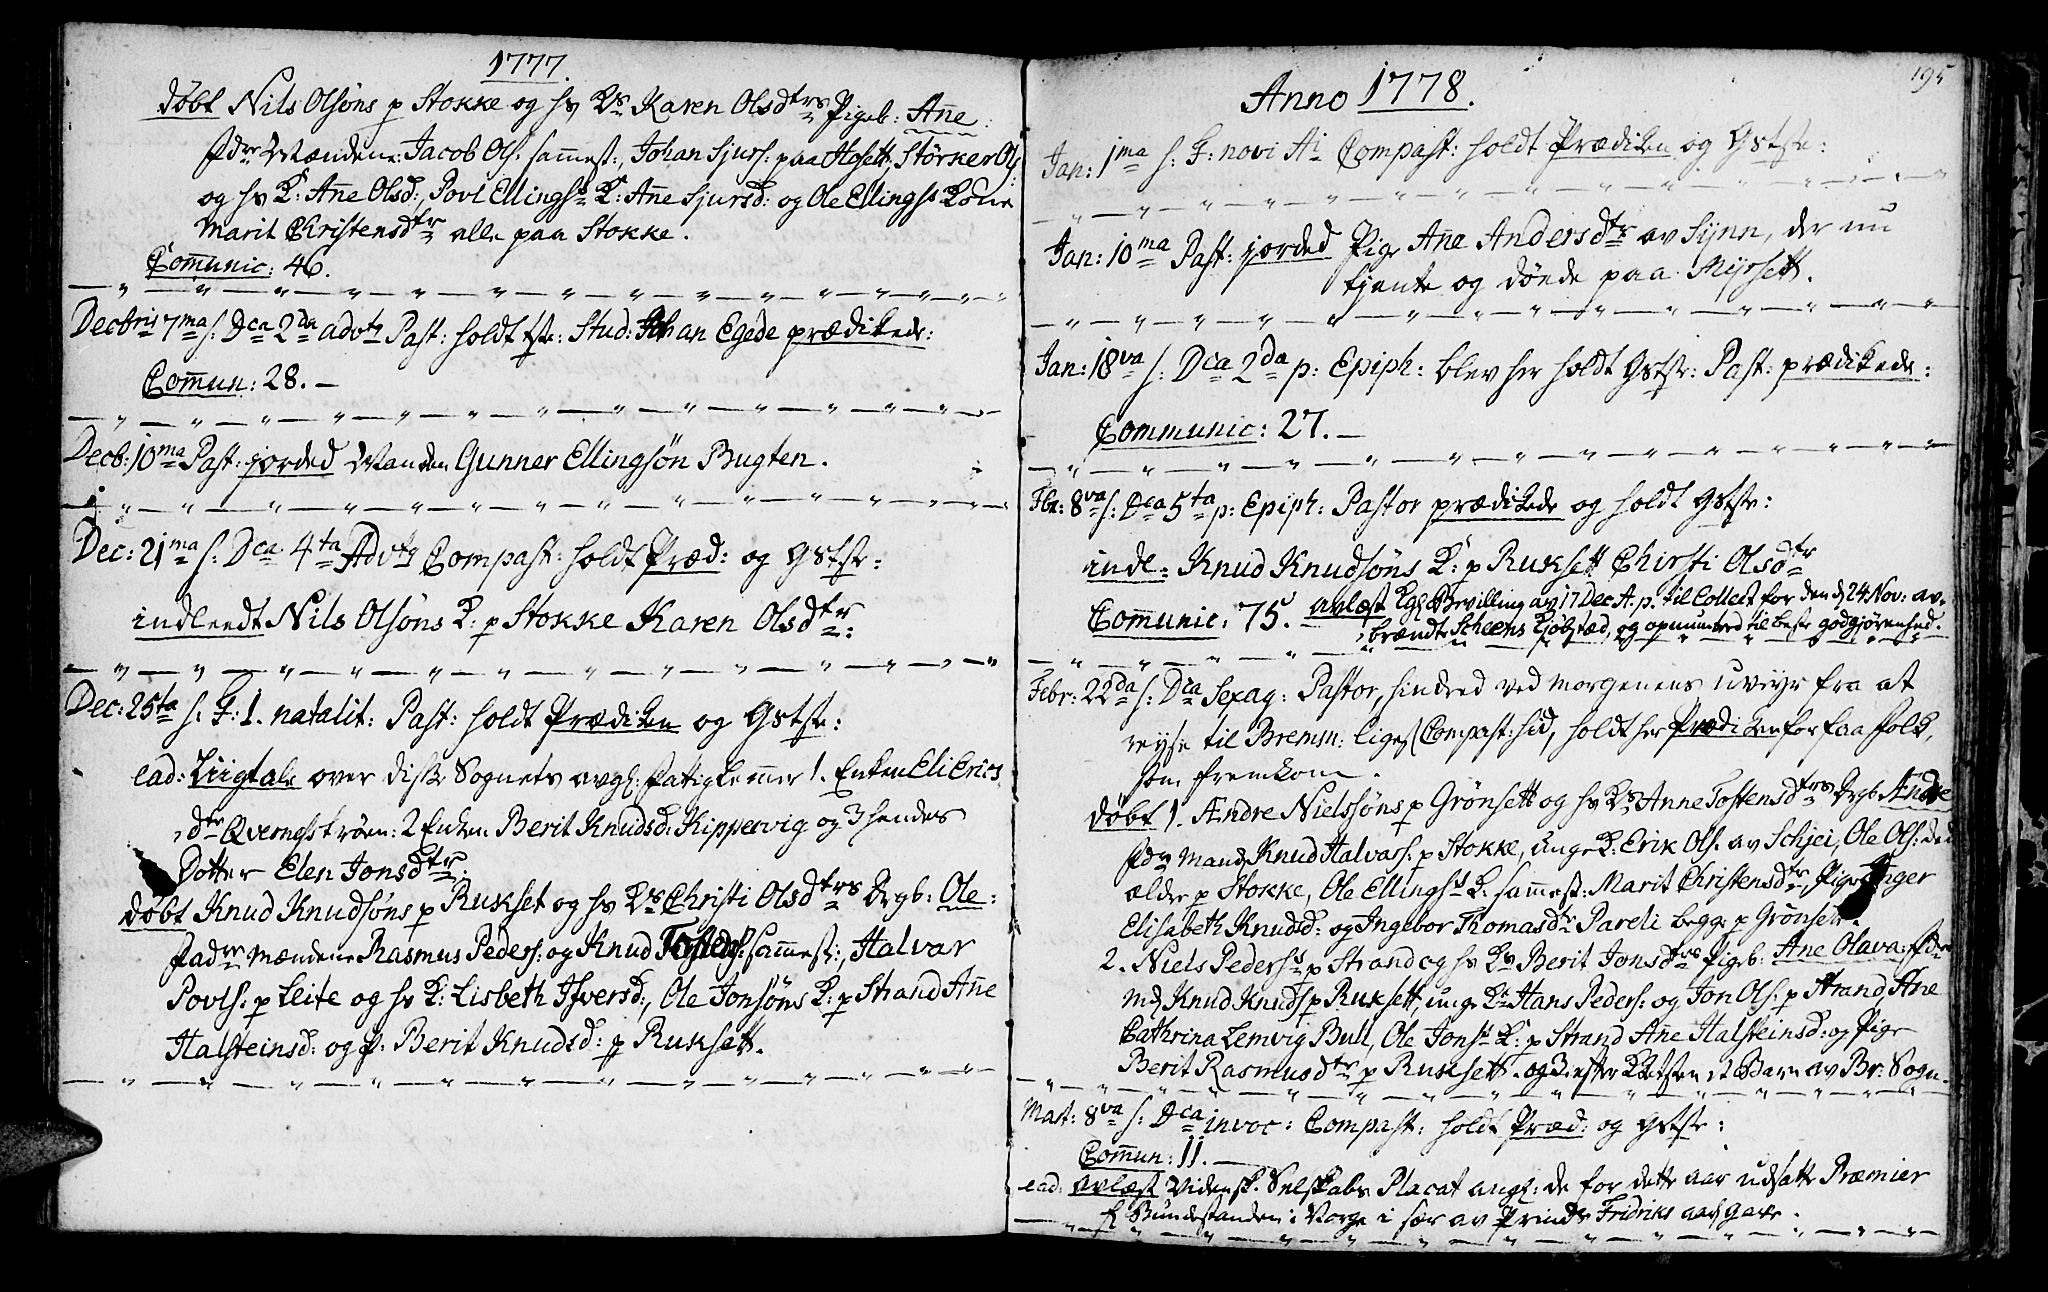 1777.
døbt Nils Olsøns p Stokke og hs Ks Karen Olsdtrs Pigeb: Ane:
fdre Mændene: Jacob Ols: samest:, Johan Sjurs: paa Hosett, Störker Ols:
og hs K: Ane Olsd:, Povl Ellings K: Ane Sjursd: og Ole Ellings Kone
Marit Christensdtr alle paa Stokke.
Comunic: 46.
Decbris 7ma s: Dca 2da advts Past: holdt tste: Stud: Johan Egede prædikede:
Commun: 28. —
Decb: 10ma Past: jorded Manden Gunner Ellingsøn Bugten.
Dec: 21ma s: Dca 4ta Advtg Compast: holdt Præd: og Gstste:
indleedt Nils Olsøns K: p Stokke Karen Olsdtr:
Dec: 25ta s: F: 1. natalit: Past: holdt Prædiken og Gstste:
ead: Liigtale over disse Sognets avg: fattiglemmer 1. Enken Eli Erics
dtr Qvernesstrøen: 2 Enken Berit Knudsd: Kippervig og 3 hendes
Dotter Elen Jonsdtr:
døbt Knud Knudsøns p Rukset og hs Ks Christi Olsdtrs Drgb: Ole:
fadre mændene Rasmus Peders: og Knud samest:, Halvar
Povls: p Leite og hs K: Lisbeth Ifversd:, Ole Jonsøns K: p Strand Ane
Halsteinsd: og P: Berit Knudsd: p Ruksett.
195
Anno 1778.
Jan: 1ma s: F: novi Ai Compast: holdt Prædiken og Gstste:
Jan: 10ma Past: jorded Pige Ane Andersdtr av Synn, der nu
tjente og døde paa Myrsett.
Jan: 18va s: Dca 2da p: Epiph: blev her holdt Gstste: Past: prædikede:
Communic: 27. —
Fbr: 8va s: Dca 5ta p: Epiph: Pastor prædikede og holdt Gstste:
indl: Knud Knudsøns K: p Ruksett Chirsti Olsdtr
Comunic: 75. avlæst Kgl: Bevilling av 17 Dec A. p. til Collect for den d 24 Nov: av-
brændte Scheens Kjøbstæd, og opmuntred til beste godgjørenhed.
Febr: 22da s: Dca Sexag: Pastor, hindred ved morgenens uveyr fra at
reyse til Bremsn: liges Compast: hid, holdt her Prædiken for faa folk,
som fremkom.
døbt 1. Andre Nielssøns p Grønsett og hs Ks Anne Tostensdtrs Drgb Andre
fdre Mand Knud Halvars: p Stokke, unge K: Erik Ols. av Schjei, Ole Ols: ded
ældre p Stokke, Ole Ellings K. samest: Marit Christensdtr, Pige Inger
Elisabeth Knudsd: og Ingebor Thomasdr Pareli begg: p Grønsett.
2. Niels Peders p Strand og hs Ks Berit Jonsdtrs Pigeb: Ane Olava: fdre
Md Knud Knuds p Ruksett, unge K: Hans Peders: og Jon Ols: p Strand, Ane
Cathrina Lemvig Bull, Ole Jons K: p Strand Ane Halsteinsd: og Pige
Berit Rasmusdtr p Ruksett. og 3 efter et Barn av Br: Sogn.
Mart: 8va s: Dca invoc: Compast: holdt Præd: og Gstste:
Commun: 11. —
ead: avlæst Vidensk. Selskabs Placat ang: de for dette aar udsatte Præmier
f Bundestanden i Norge i sær av Prinds Fridriks aars gave.